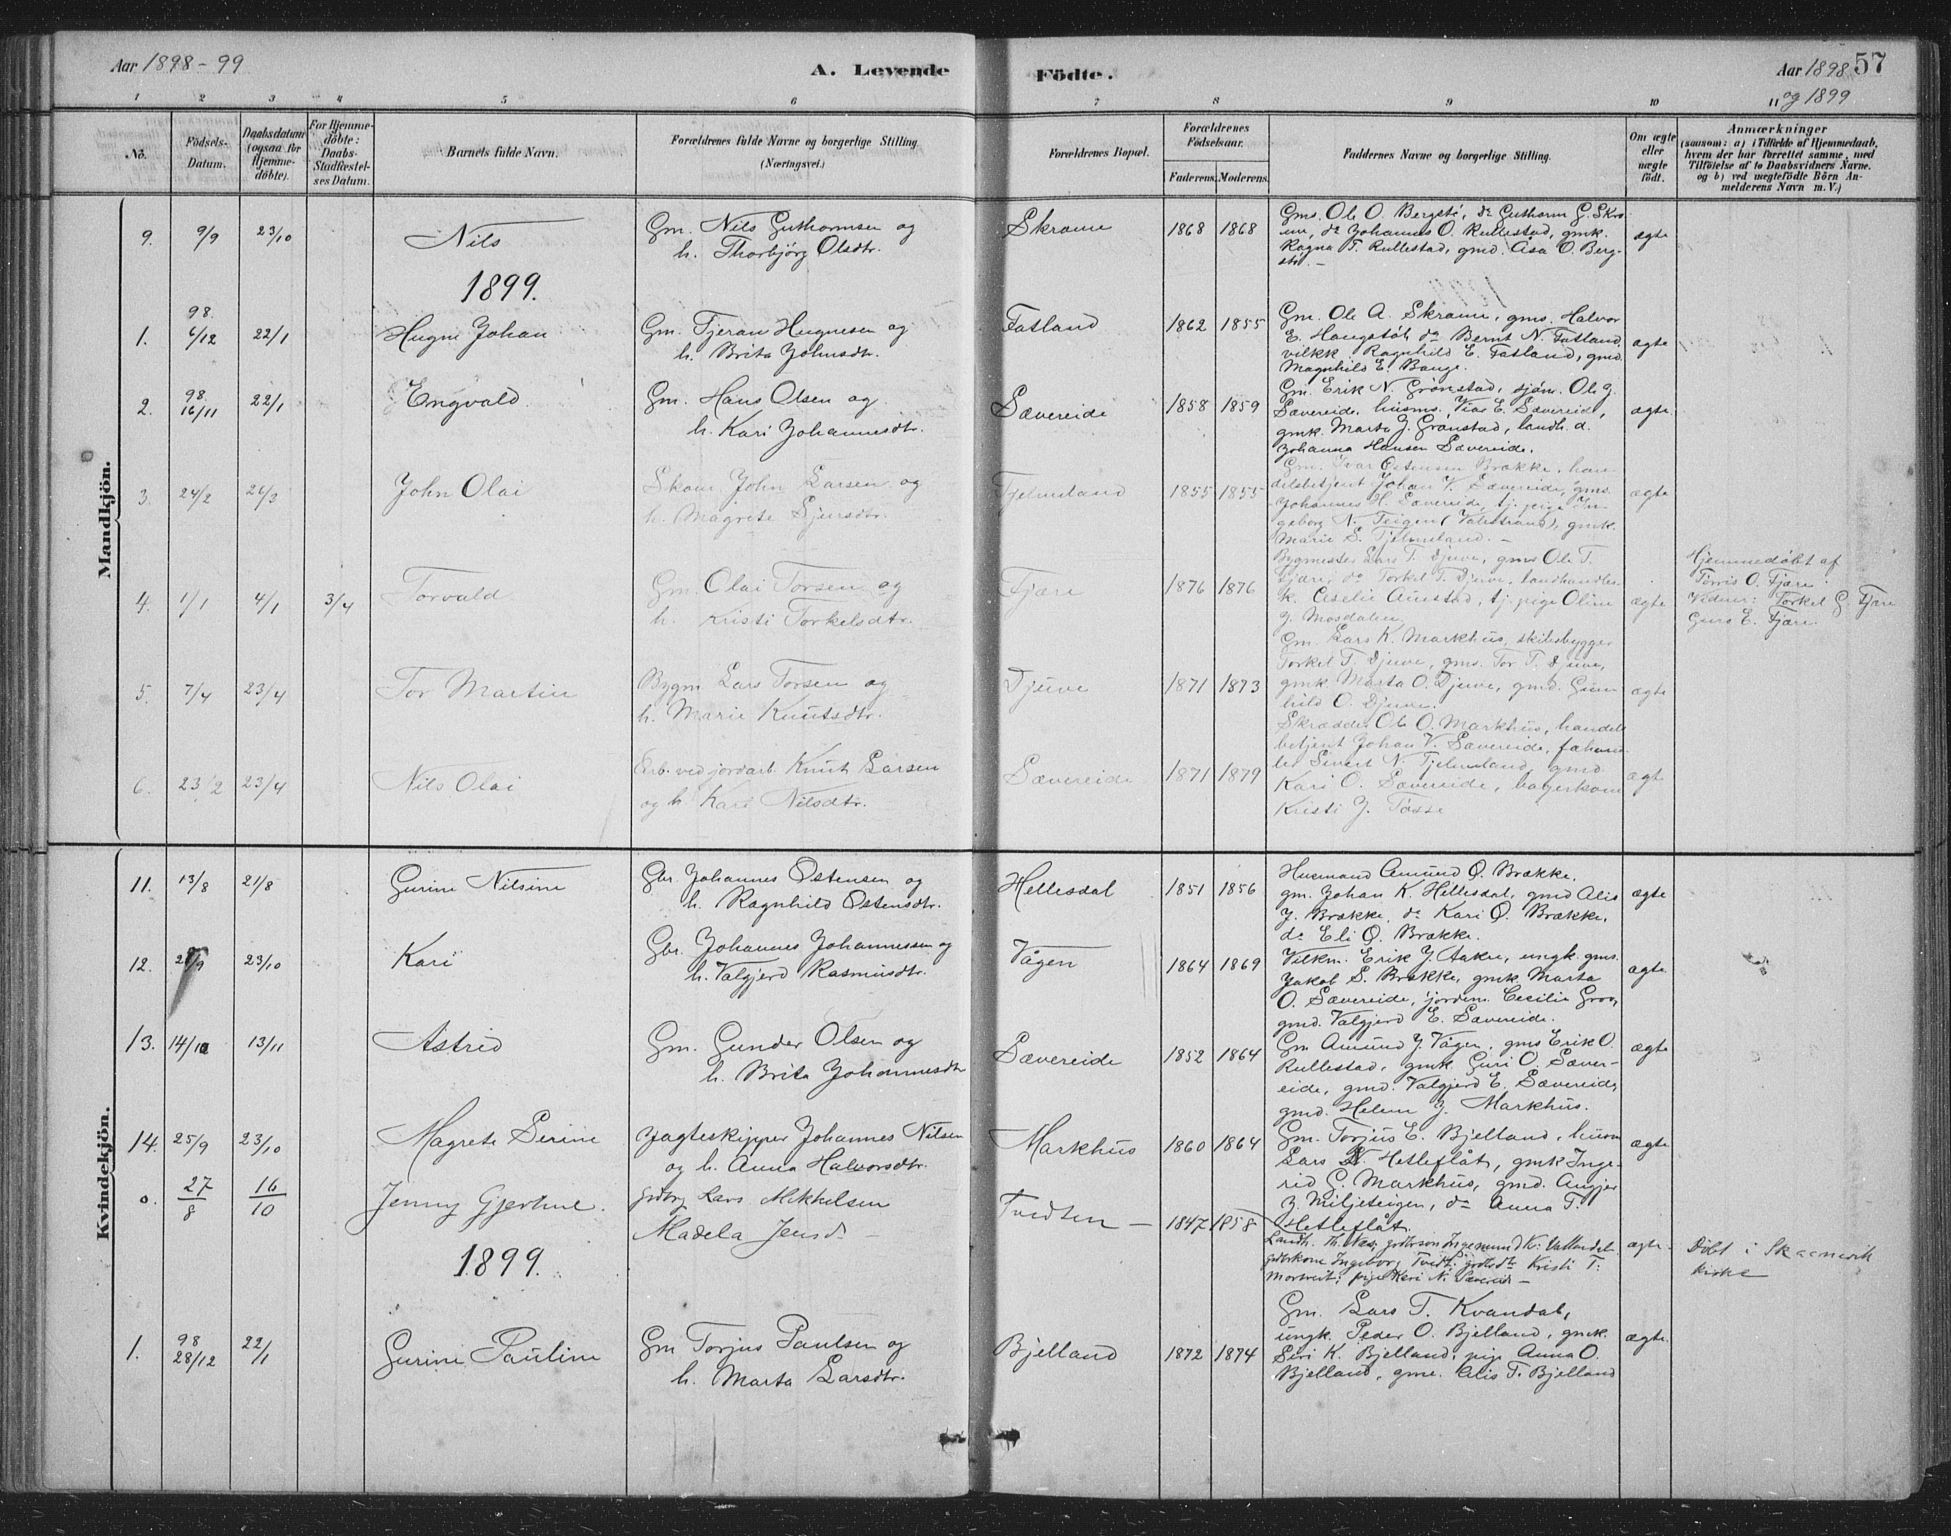 Aar 1898-99
A. Levende Födte.
Aar 1898 57
og 1899
1 2 3 4 5 6 7 8 9 10 11
No.
Födsels-Datum.
Daabsdatum (ogsaa for Hjemme-döbte).
For Hjemme-döbte: Daabs-Stadfæstel-ses Datum.
Barnets fulde Navn.
Forældrenes fulde Navne og borgerlige Stilling. (Næringsvei.)
Forældrenes Bopæl.
Forældrenes Födselsaar.
Faderens. Moderens.
Faddernes Navne og borgerlige Stilling.
Om ægte eller uægte födt.
Anmærkninger
(saasom: a) i Tilfælde af Hjemmedaab,
hvem der har forrettet samme, med
Tilföielse af to Daabsvidners Navne.
og b) ved uægtefödte Börn An-
melderens Navn m. V.)
Mandkjön.
9. 9/9 23/10 Nils
Gm. Nils Guthormsen og
h. Thorbjörg Olsdtr.
Skrame 1868 1868
Gms. Ole O. Bergstö, do Guthorm G. Skra
me, do Johannes O. Rullestad, gmk.
Ragna T. Rullestad, gmd. Åsa O. Berg-
stö. –
ægte
1899.
1. 98. 6/12 22/1 Hugne Johan
Gm. Tjeran Hugnesen og
h. Brita Johnsdtr.
Fatland 1862 1855
Gm. Ole A. Skrame, gms. Halvor
E. Haugstöl, do Bernt N. Fatland,
vilkk Ragnhild E. Fatland, gmd.
Magnhild E. Bauge.
ægte
2. 98. 16/11 22/1 Engvald
Gm. Hans Olsen og
h. Kari Johannesdtr.
Sævereide 1858 1859
Gm. Erik N. Grönstad, sjöm. Ole J.
Sævereide, husms. Viar E. Sævereide,
gmk. Marta J. Grönstad, landh. d.
Johanna Hansen Sævereide.
ægte.
3. 24/2 26/3 John Olai
Skom. John Larsen og
h. Magrete Sjursdtr.
Tjelmeland 1855 1855
Gm. Ivar Östensen Brække, han-
delsbetjent Johan V. Sævereide, gms.
Johannes H. Sævereide, tj. pige In-
geborg N. Teigen (Valestrand), gmk.
Marie S. Tjelmeland. –
ægte
4. 1/1 4/1 3/4 Torvald
Gm. Olai Torsen og
h. Kristi Torkelsdtr.
Fjære 1876 1876
Bygmester Lars T. Djuve, gms Ole T.
Fjære, do Torkel T. Djuve, landhandler
k. Ceselie Aunstad, tj. pige Oline
J. Mosdalen
ægte
Hjemmedöbt af
Torris O. Fjære.
Vidner: Torkel G. Fjære
Guro E. Fjære.
5. 7/4 23/4 Tor Martin
Bygm Lars Torsen og
h. Marie Knutsdtr.
Djuve 1871 1873
Gm. Lars K. Markhus, skibsbygger
Torkel T. Djuve, gms. Tor T. Djuve,
gmk. Marta O. Djuve, gmd. Gun-
hild O. Djuve.
ægte
6. 23/2 23/4 Nils Olai
Arb. ved jordarb. Knut Larsen
og h. Kari Nilsdtr.
Sævereide 1871 1879
Skrædder Ole O. Markhus, handels
betjent Johan V. Sævereide,
Sivert N. Tjelmeland, gmd.
Kari O. Sævereide, bagerkone
Kristi J. Tösse
ægte
Kvindekjön.
11. 13/8 21/8 Gurine Nilsine
Gbr. Johannes Östensen og
h. Ragnhild Östensdtr.
Hellesdal 1851 1856
Husmand Amund Ö. Brække.
gm. Johan K. Hellesdal, gmd Alis
J. Brække, do Kari Ö. Brække,
do Eli Ö. Brække.
ægte
12. 23/10 Kari
Gbr. Johannes Johannessen og
h. Valgjerd Rasmusdtr.
Vågen 1864 1869
Vilkm. Erik J. Aakre, ungk. gms.
Jakob S. Brække, gmk. Marta
O. Sævereide, jordem. Cecilie Groo,
gmd. Valgjerd E. Sævereide.
ægte
13. 14/10 13/11 Astrid
Gm. Gunder Olsen og
h. Brita Johannesdtr
Sævereide 1852 1864
Gm Amund J. Vågen, gms Erik O.
Rullestad, gmk. Guri O. Sæver-
eide, gmd. Valgjerd E. Sævereide,
gmd. Helene J. Markhus.
ægte
14. 25/9 23/10 Magrete Serine
Jagteskipper Johannes Nilsen
og h. Anna Halvorsdtr.
Markhus 1860 1864
Gm. Torjus E. Bjelland, husm
Lars N. Hetleflåt, gmk Inge-
rid G. Markhus, gmd. Angjer
J. Miljeteigen, do Anna T.
Hetleflåt.
ægte
0. 27/8 16/10 Jenny Gjertine.
gdbrg Lars Mikkelsen
Madela Jensd –
Tvedten – 1847 1858
Landh. Th. Næs, gdbrson Ingemund K. Vallandal
gdbrkone Ingeborg Tvedt; grdbdtr Kristi T.
Mortveit; pige Kari N. Sævereid –
ægte
Döbt i Skaanevik
kirke
1899.
1. 98 28/12 22/1 Gurine Pauline
Gm Torjus Paulsen og
h. Marta Larsdtr.
Bjelland 1872 1874
Gm. Lars T. Kvandal,
ungk. Peder O. Bjelland, gmk.
Siri K. Bjelland, pige Anna O.
Bjelland, gme. Alis T. Bjelland
ægte.